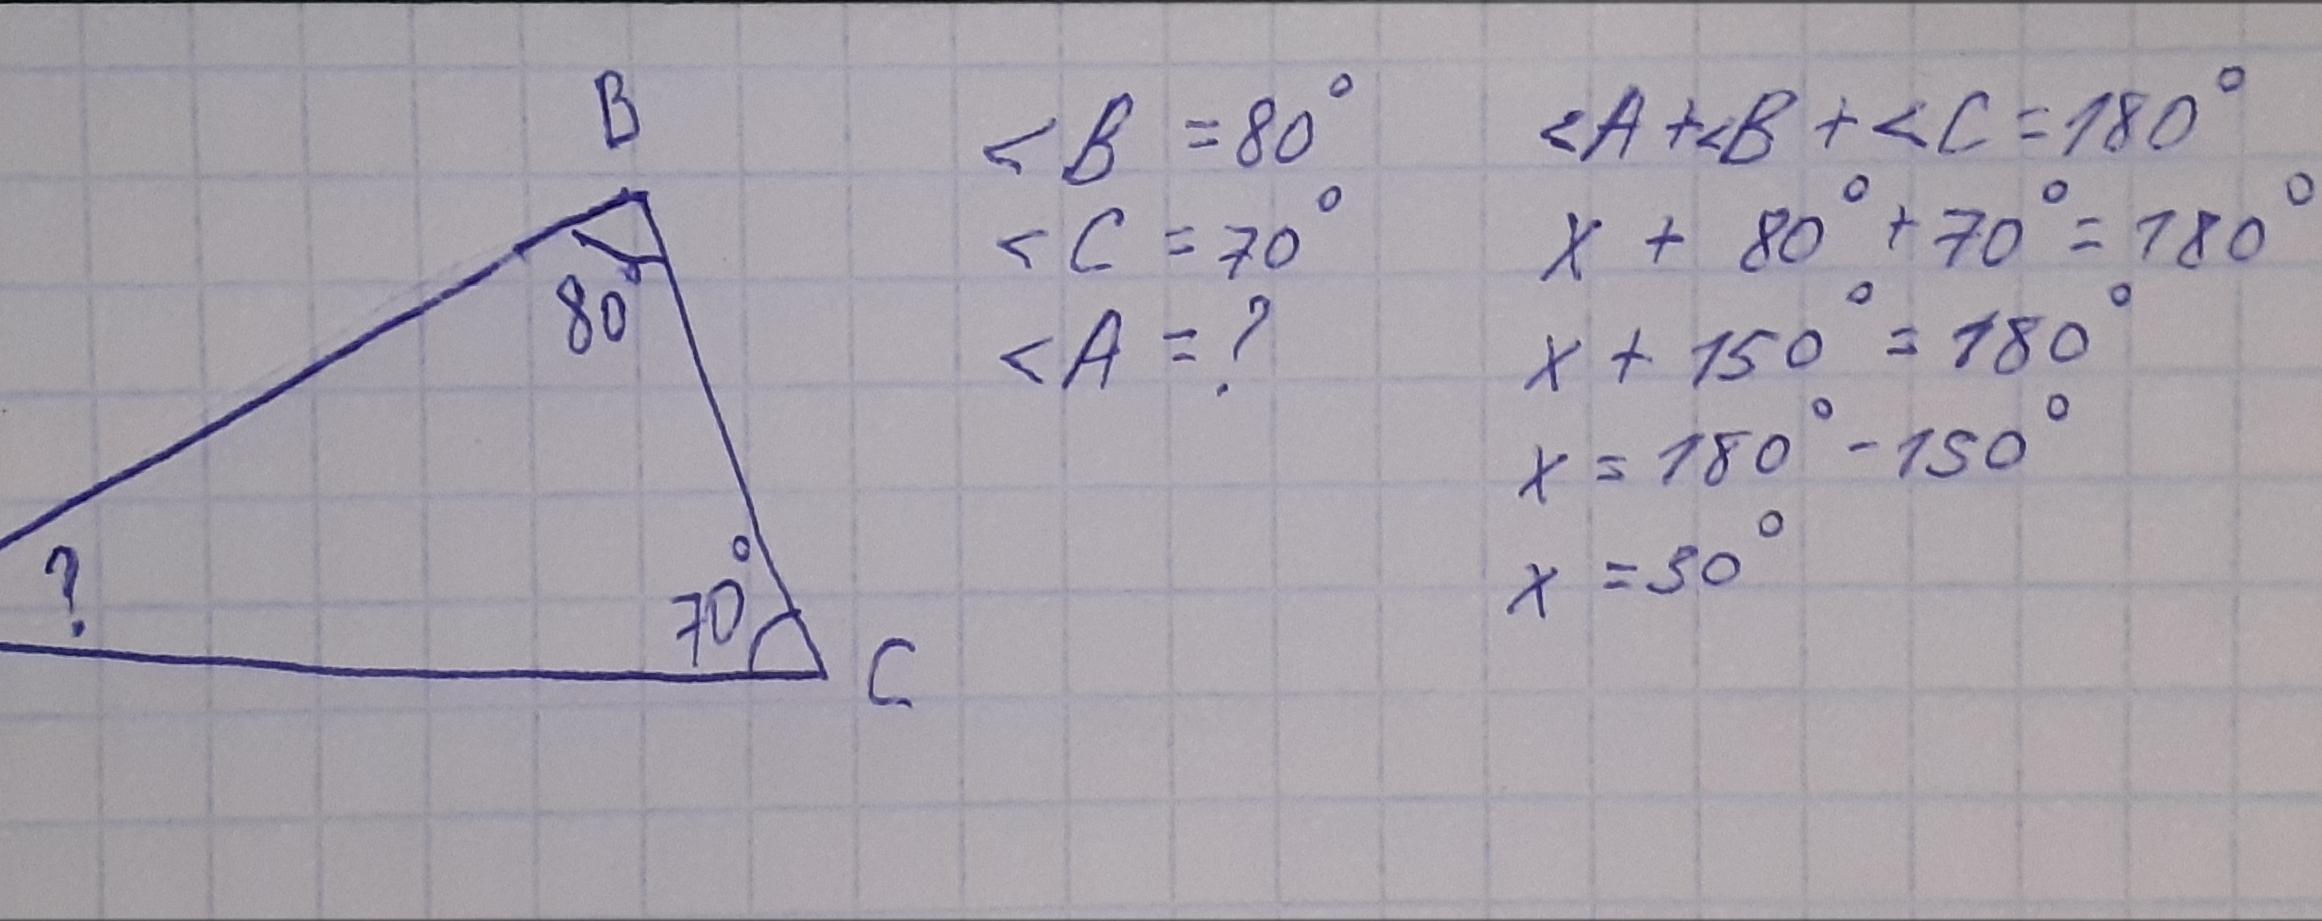 B
80°
?
70°
C
<B =80°
<C =70°
<A =?
<A+<B+<C=180°
x + 80°+70°=180°
x + 150° = 180°
x = 180° - 150°
x = 30°